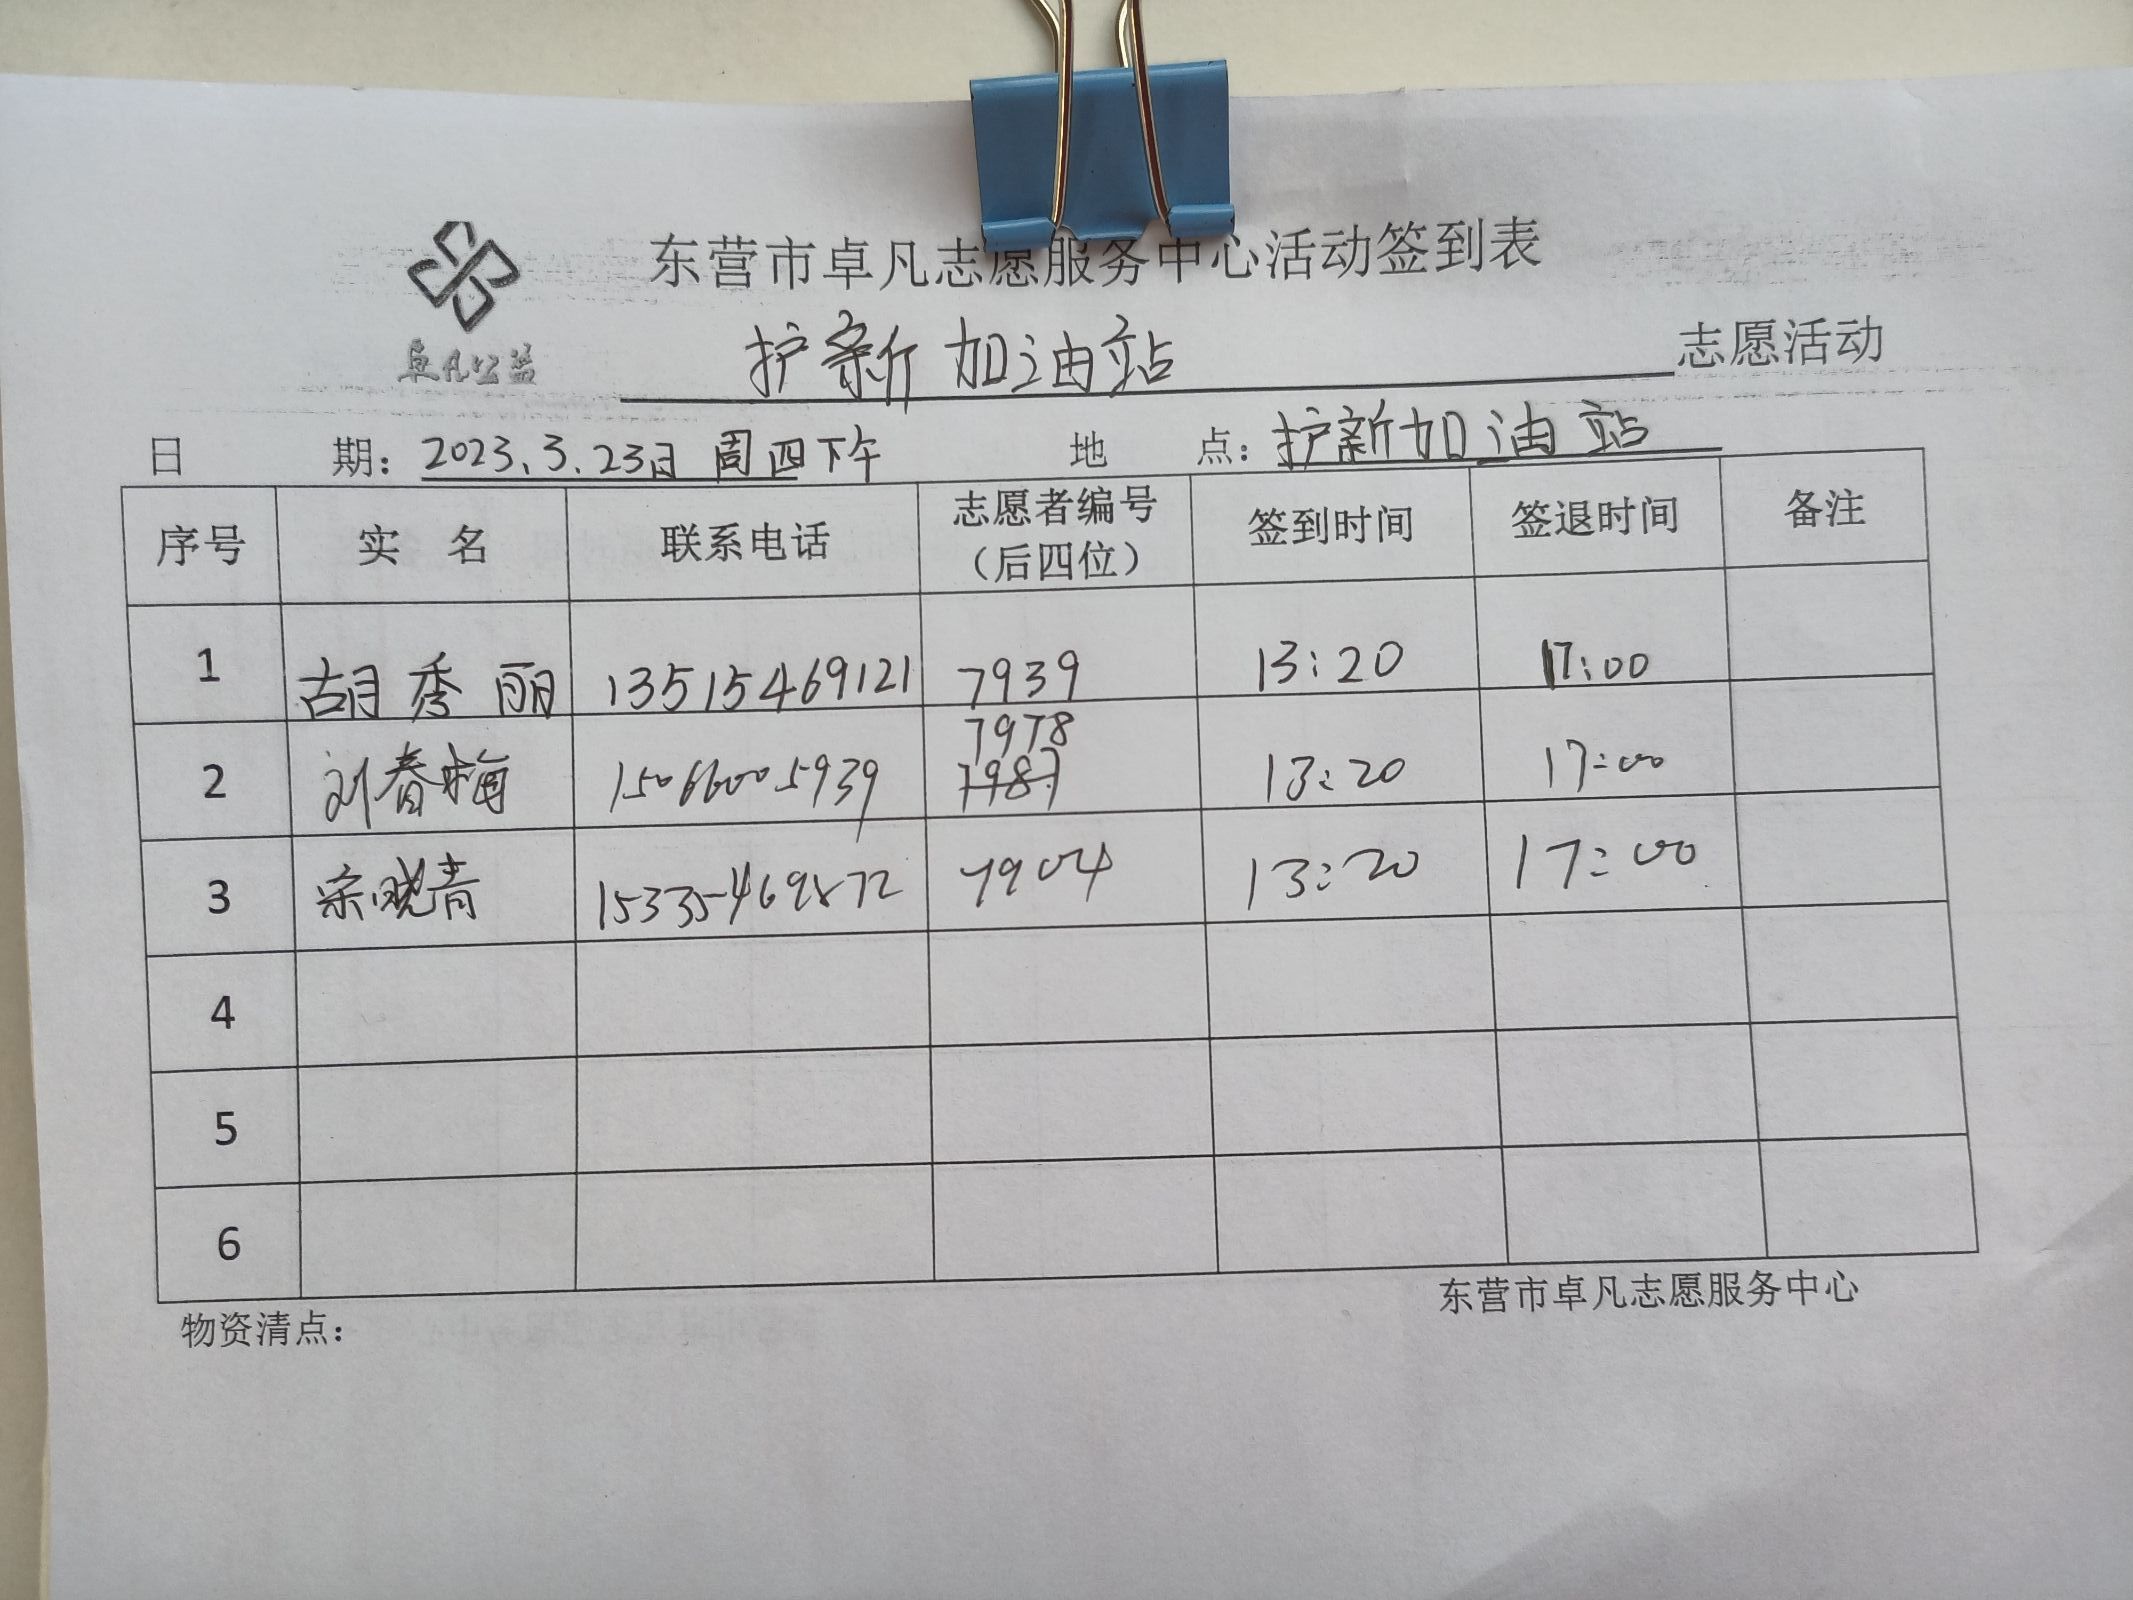 东营市卓凡志愿服务中心活动签到表
卓凡公益
护新加油站 志愿活动
日 期：2023.3.23日 周四下午 地 点：护新加油站
序号 实 名 联系电话 志愿者编号（后四位） 签到时间 签退时间 备注
1 胡秀丽 13515469121 7939 13:20 17:00
7978
2 刘春梅 15066005939 7987 13:20 17:00
3 宗晓青 15335469872 7904 13:20 17:00
4
5
6
物资清点： 东营市卓凡志愿服务中心